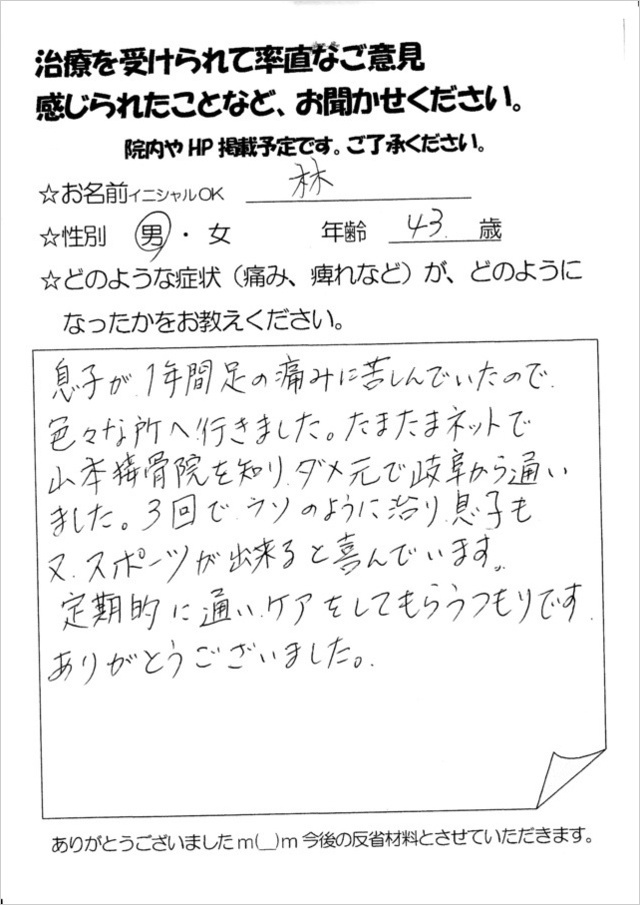 治療を受けられて率直なご意見
感じられたことなど、お聞かせください。
院内やHP掲載予定です。ご了承ください。
☆お名前イニシャルOK 林
☆性別 男・女 年齢 43 歳
☆どのような症状（痛み、痺れなど）が、どのように
なったかをお教えください。
息子が1年間足の痛みに苦しんでいたので
色々な所へ行きました。たまたまネットで
山本接骨院を知り、ダメ元で岐阜から通い
ました。3回でウソのように治り息子も
又、スポーツが出来ると喜んでいます。
定期的に通い、ケアをしてもらうつもりです。
ありがとうございました。
ありがとうございましたm(__)m今後の反省材料とさせていただきます。